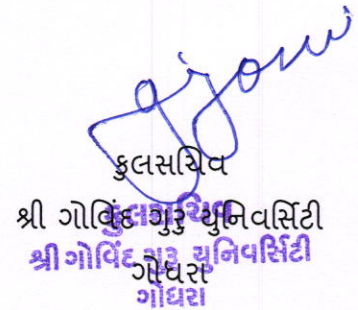 કુલસચિવ
શ્રી ગોવિંદ ગુરુ યુનિવર્સિટી
ગોધરા
કુલસચિવ
શ્રી ગોવિંદ ગુરુ યુનિવર્સિટી
ગોધરા